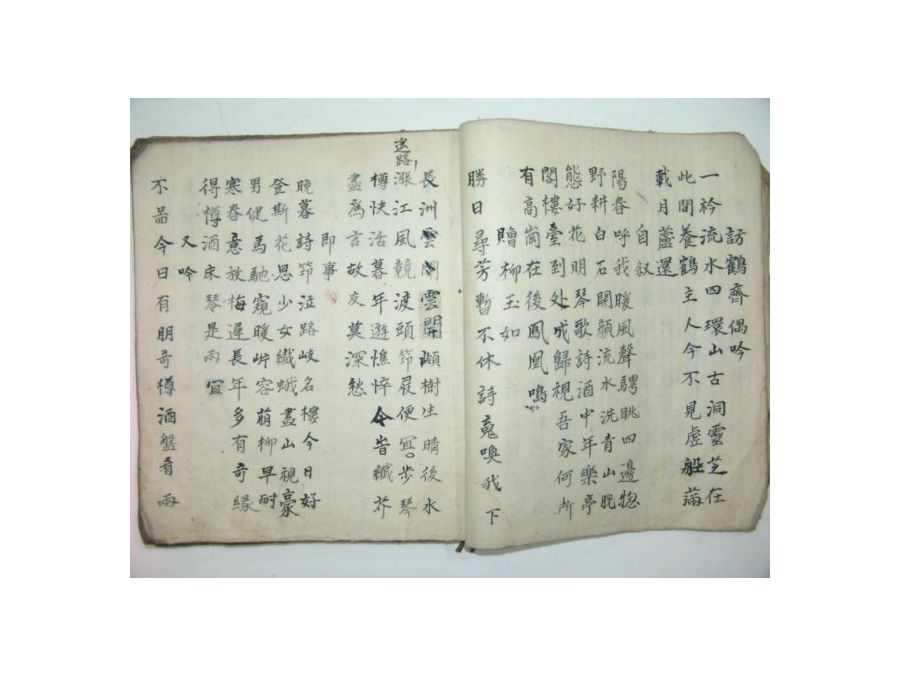 訪鶴齊偶吟
一衿流水四環山古洞靈芝在
此間養鶴主人今不見虛船滿
載月蘆還
自叙
陽春呼我暖風聲騁眺四邊惚
野耕白石開顏流水洗青山晩
態好花明琴歌詩酒中年樂亭
閣樓臺到处成歸視吾家何所
有高崗在後鳳凰鳴
贈柳玉如
勝日尋芳暫不休詩嵬喚我下
迷路
長洲雲閣雲開巔樹生晴後水
漲江風競渡頭筇屐便宜步琴
樽快活暮年遊憔悴今昔纖芥
盡爲言故友莫深愁
即事
晚暮詩筇泣路岐名樓今日好
登斯花恩少女纖蛾畫山視豪
男健馬馳窺暖屿容萌柳早耐
寒春意放梅遲長年多有奇緣
得樽酒床琴是兩宜
又吟
不啚今日有朋奇樽酒盤肴兩